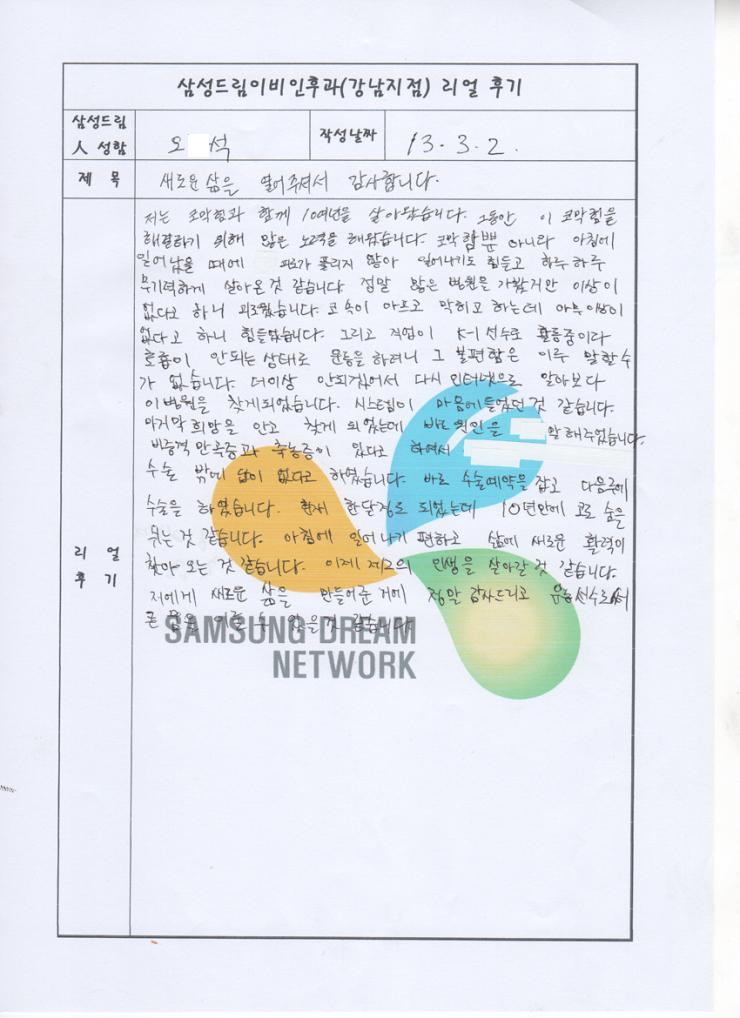 삼성드림이비인후과(강남지점) 리얼 후기
삼성드림
人 성함
오 석
작성날짜
13. 3. 2.
제 목
새로운 삶을 열어주셔서 감사합니다.
저는 코막힘과 함께 10여년을 살아왔습니다. 그동안 이 코막힘을
해결하기 위해 많은 노력을 해왔습니다. 코막힘뿐 아니라 아침에
일어났을 때에 피로가 풀리지 않아 일어나기도 힘들고 하루하루
무기력하게 살아온것 같습니다. 정말 많은 병원을 가봤지만 이상이
없다고 하니 괴로웠습니다. 코속이 아프고 막히고 하는데 아무이상이
없다고 하니 힘들었습니다. 그리고 직업이 K-1 선수로 활동중이라
호흡이 안되는 상태로 운동을 하려니 그 불편함은 이루 말할수
가 없습니다. 더이상 안되겠어서 다시 인터넷으로 알아보다
이병원을 찾게되었습니다. 시스템이 마음에들었던것 같습니다.
마지막 희망을 안고 찾게 되었는데 바로 원인을 말해주었습니다.
비중격만곡증과 축농증이 있다고 하여서
수술 밖에 답이 없다고 하였습니다. 바로 수술예약을 잡고 다음주에
수술을 하였습니다. 현재 한달정도 되었는데 10년만에 코로 숨을
쉬는것 같습니다. 아침에 일어나기 편하고 삶에 새로운 활력이
찾아 오는 것 같습니다. 이제 제2의 인생을 살아갈것 같습니다.
저에게 새로운 삶을 만들어준 거에 정말 감사드리고 운동선수로서
큰 꿈을 이룰 수 있을것 같습니다.
리 얼
후 기
SAMSUNG DREAM
NETWORK